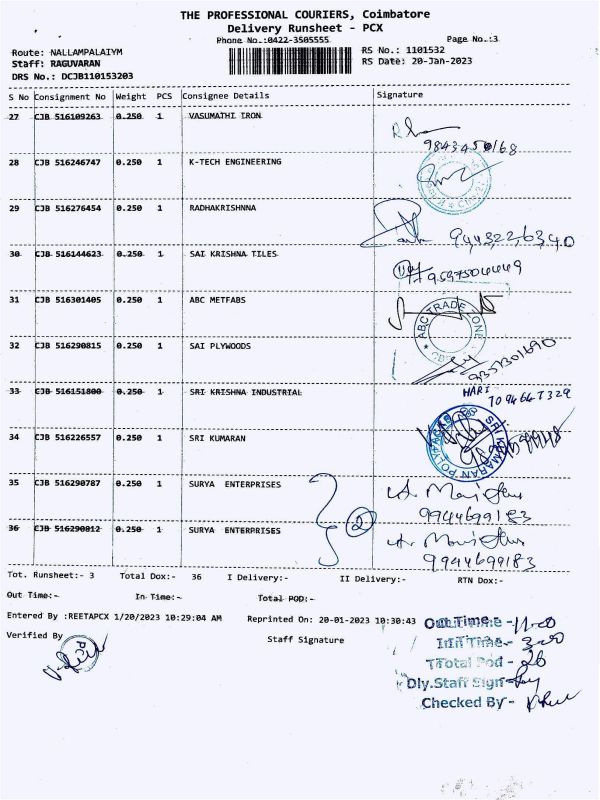 THE PROFESSIONAL COURIERS, Coimbatore
Delivery Runsheet - PCX
Phone No.:0422-3505555
Page No.:3
Route: NALLAMPALAIYM
RS No.: 1101532
Staff: RAGUVARAN
RS Date: 20-Jan-2023
DRS No.: DCJB110153203
S No Consignment No Weight PCS Consignee Details Signature
27 CJB 516109263 0.250 1 VASUMATHI IRON
28 CJB 516246747 0.250 1 K-TECH ENGINEERING
29 CJB 516276454 0.250 1 RADHAKRISHNNA
30 CJB 516144623 0.250 1 SAI KRISHNA TILES
31 CJB 516301405 0.250 1 ABC METFABS
ABC TRADE ZONE
32 CJB 516290815 0.250 1 SAI PLYWOODS
33 CJB 516151800 0.250 1 SRI KRISHNA INDUSTRIAL HARI
34 CJB 516226557 0.250 1 SRI KUMARAN
SRI KUMARAN
35 CJB 516290787 0.250 1 SURYA ENTERPRISES
9944699183
2
36 CJB 516290812 0.250 1 SURYA ENTERPRISES
9944699183
Tot. Runsheet:- 3 Total Dox:- 36 I Delivery:- II Delivery:- RTN Dox:-
Out Time:- In Time:- Total POD:-
Entered By :REETAPCX 1/20/2023 10:29:04 AM Reprinted On: 20-01-2023 10:30:43
Out Time - 11.00
Verified By Staff Signature
In Time - 3.00
PCX
Total Pod - 26
Dly.Staff Sign
Checked By -